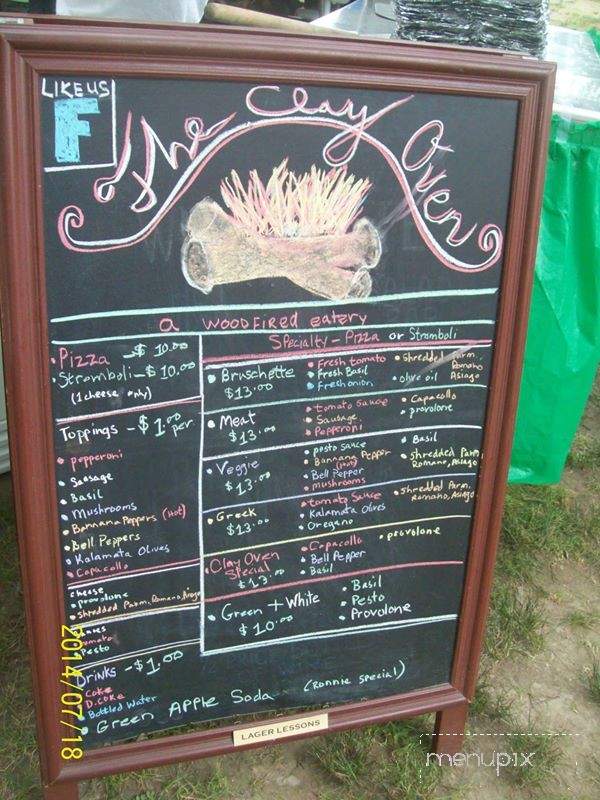 LIKE US
F
The Clay Oven
a WOODFIRED eatery
Pizza - $10.00
Stromboli - $10.00
(1 cheese only)
Toppings - $1.00 per
pepperoni
Sausage
Basil
Mushrooms
Bannana Peppers (Hot)
Bell Peppers
Kalamata Olives
Capacollo
cheese
provolone
Shredded Parm, Romano, Asiago
Pesto
DRINKS - $1.00
Coke
D. COKE
Bottled Water
Green APPLE Soda (Ronnie Special)
Specialty - Pizza or Stromboli
Bruschette $13.00
Fresh tomato
Fresh Basil
Fresh onion
shredded Parm, Romano Asiago
olive oil
Meat $13.00
tomato sauce
Sausage
Pepperoni
Capacollo
provolone
Veggie $13.00
pesto sauce
Bannana Pepper (Hot)
Bell Pepper
mushrooms
Basil
shredded Parm Romano, Asiago
Greek $13.00
tomato Sauce
Kalamata Olives
Oregano
shredded Parm, Romano, Asiago
Clay Oven Special $13.00
Capacollo
Bell Pepper
Basil
provolone
Green + White $10.00
Basil
Pesto
Provolone
LAGER LESSONS
2014/07/18
menupix